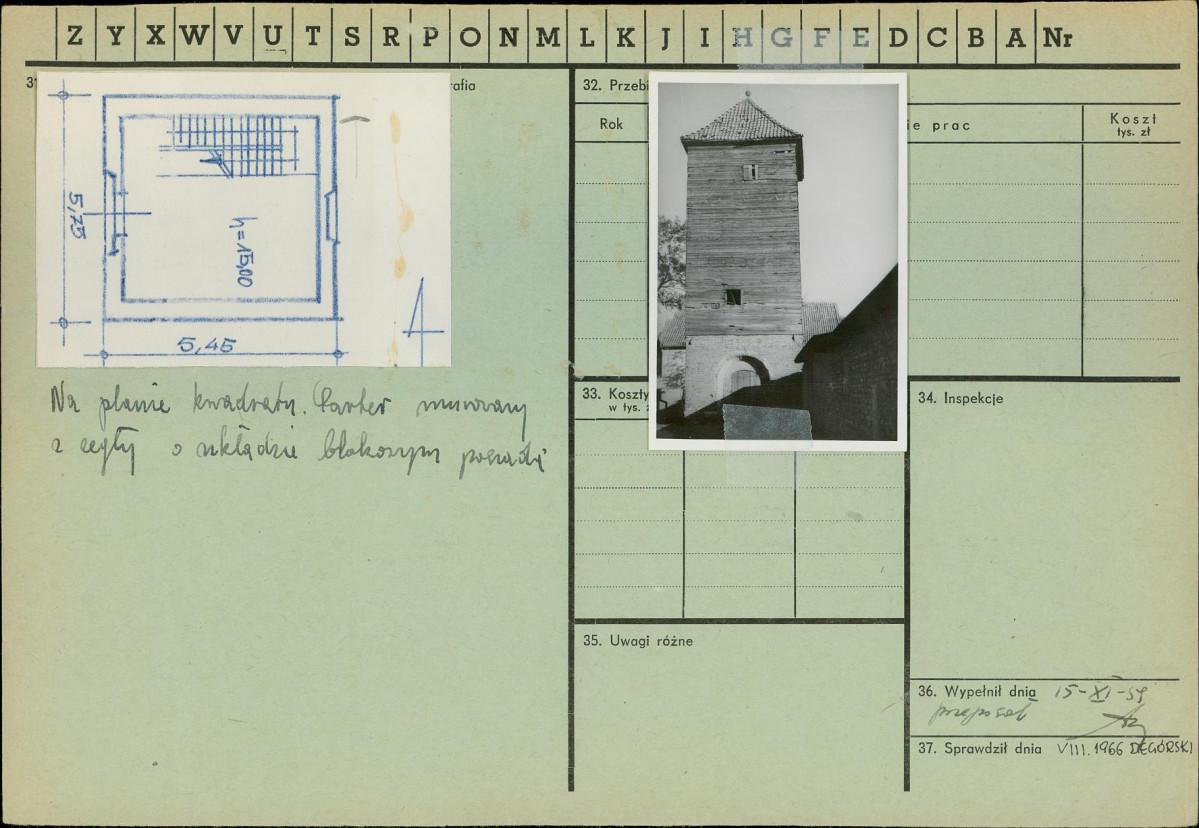 Z Y X W V U T S R P O N M L K J I H G F E D C B A Nr
31
afia
5,75
h=15,00
5,45
Na planie kwadratu. Parter murowany
z cegły o układzie blokowym
32. Przebi
ie prac
Rok
Koszt
tys. zł
33. Koszty
w tys. z
34. Inspekcje
35. Uwagi różne
36. Wypełnił dnia 15-XI-59
przepisał
37. Sprawdził dnia VIII.1966 DĘGÓRSKI